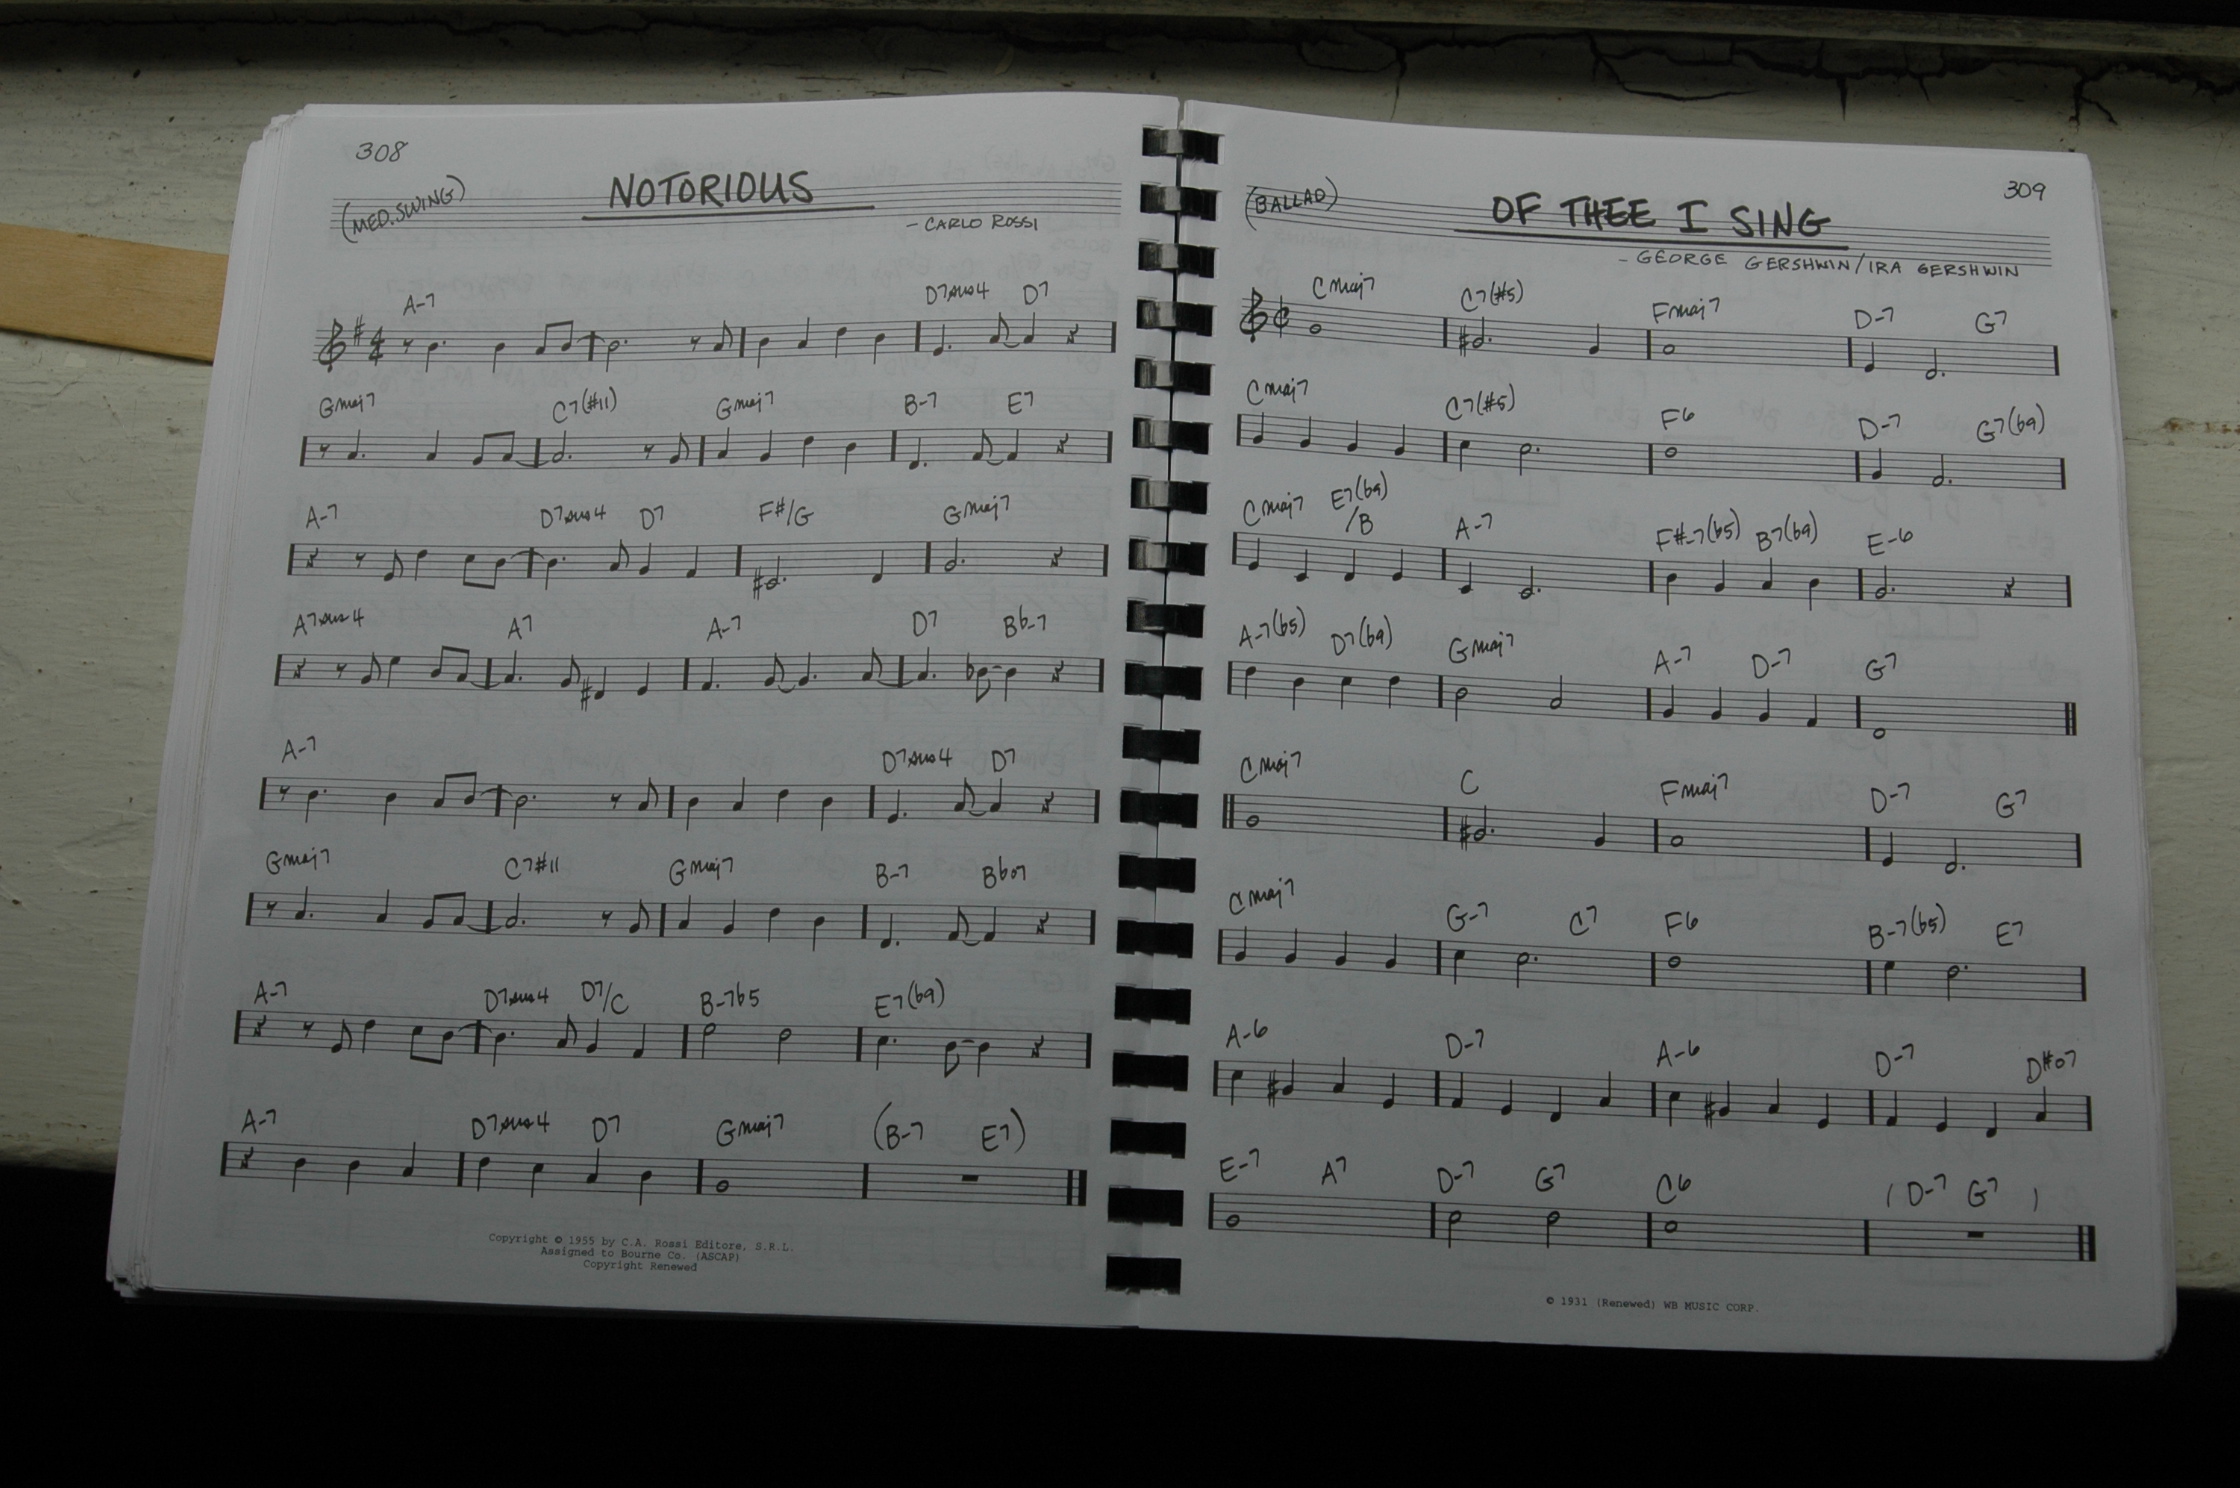 308
NOTORIOUS
(MED. SWING)
- CARLO ROSSI
A-7 D7sus4 D7
Gmaj7 C7(#11) Gmaj7 B-7 E7
A-7 D7sus4 D7 F#/G Gmaj7
A7sus4 A7 A-7 D7 Bb-7
A-7 D7sus4 D7
Gmaj7 C7#11 Gmaj7 B-7 Bbo7
A-7 D7sus4 D7/C B-7b5 E7(b9)
A-7 D7sus4 D7 Gmaj7 (B-7 E7)
Copyright © 1955 by C.A. Rossi Editore, S.R.L.
Assigned to Bourne Co. (ASCAP)
Copyright Renewed
309
(BALLAD)
OF THEE I SING
- GEORGE GERSHWIN/IRA GERSHWIN
Cmaj7 C7(#5) Fmaj7 D-7 G7
Cmaj7 C7(#5) F6 D-7 G7(b9)
Cmaj7 E7(b9)/B A-7 F#-7(b5) B7(b9) E-6
A-7(b5) D7(b9) Gmaj7 A-7 D-7 G7
Cmaj7 C Fmaj7 D-7 G7
Cmaj7 G-7 C7 F6 B-7(b5) E7
A-6 D-7 A-6 D-7 D#o7
E-7 A7 D-7 G7 C6 (D-7 G7)
© 1931 (Renewed) WB MUSIC CORP.